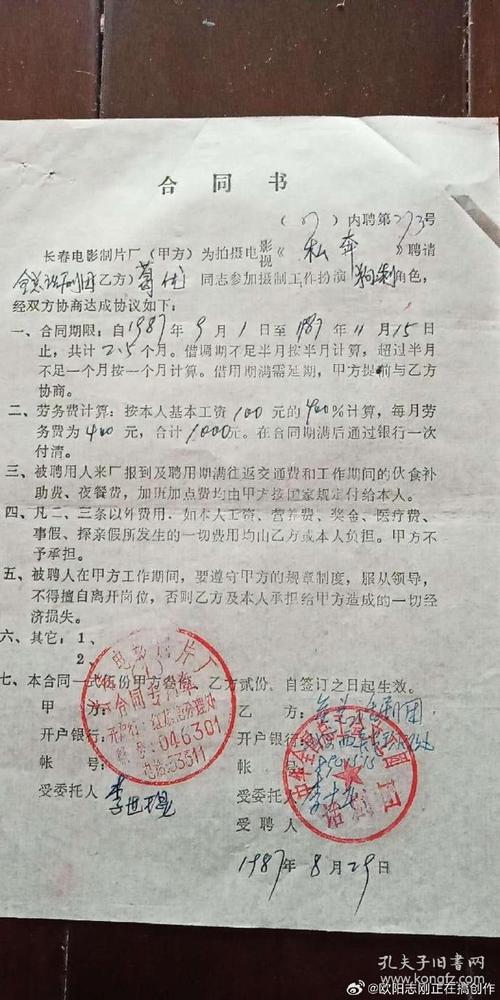 合同书
(87)内聘第273号
长春电影制片厂(甲方)为拍摄电影视《私奔》聘请
全总话剧团乙方)葛优同志参加摄制工作扮演狗剩角色,
经双方协商达成协议如下:
一、合同期限:自1987年9月1日至1987年11月15日
止,共计2.5个月。借调期不足半月按半月计算,超过半月
不足一个月按一个月计算。借用期满需延期,甲方提前与乙方
协商。
二、劳务费计算:按本人基本工资100元的400%计算,每月劳
务费为400元,合计1000元。在合同期满后通过银行一次
付清。
三、被聘用人来厂报到及聘用期满往返交通费和工作期间的伙食补
助费、夜餐费,加班加点费均由甲方按国家规定付给本人。
四、凡二、三条以外费用,如本人工资、营养费、奖金、医疗费、
事假、探亲假所发生的一切费用均由乙方或本人负担。甲方不
予承担。
五、被聘人在甲方工作期间,要遵守甲方的规章制度,服从领导,
不得擅自离开岗位,否则乙方及本人承担给甲方造成的一切经
济损失。
六、其它:1、
2、
七、本合同一式伍份甲方叁份,乙方贰份,自签订之日起生效。
甲方:
开户银行:
帐号:
受委托人
电影制片厂
合同专用章
046301
电话:53311
乙方:
开户银行:
帐号:
受委托人
受聘人
1987年8月29日
孔夫子旧书网
@欧阳志刚正在搞创作